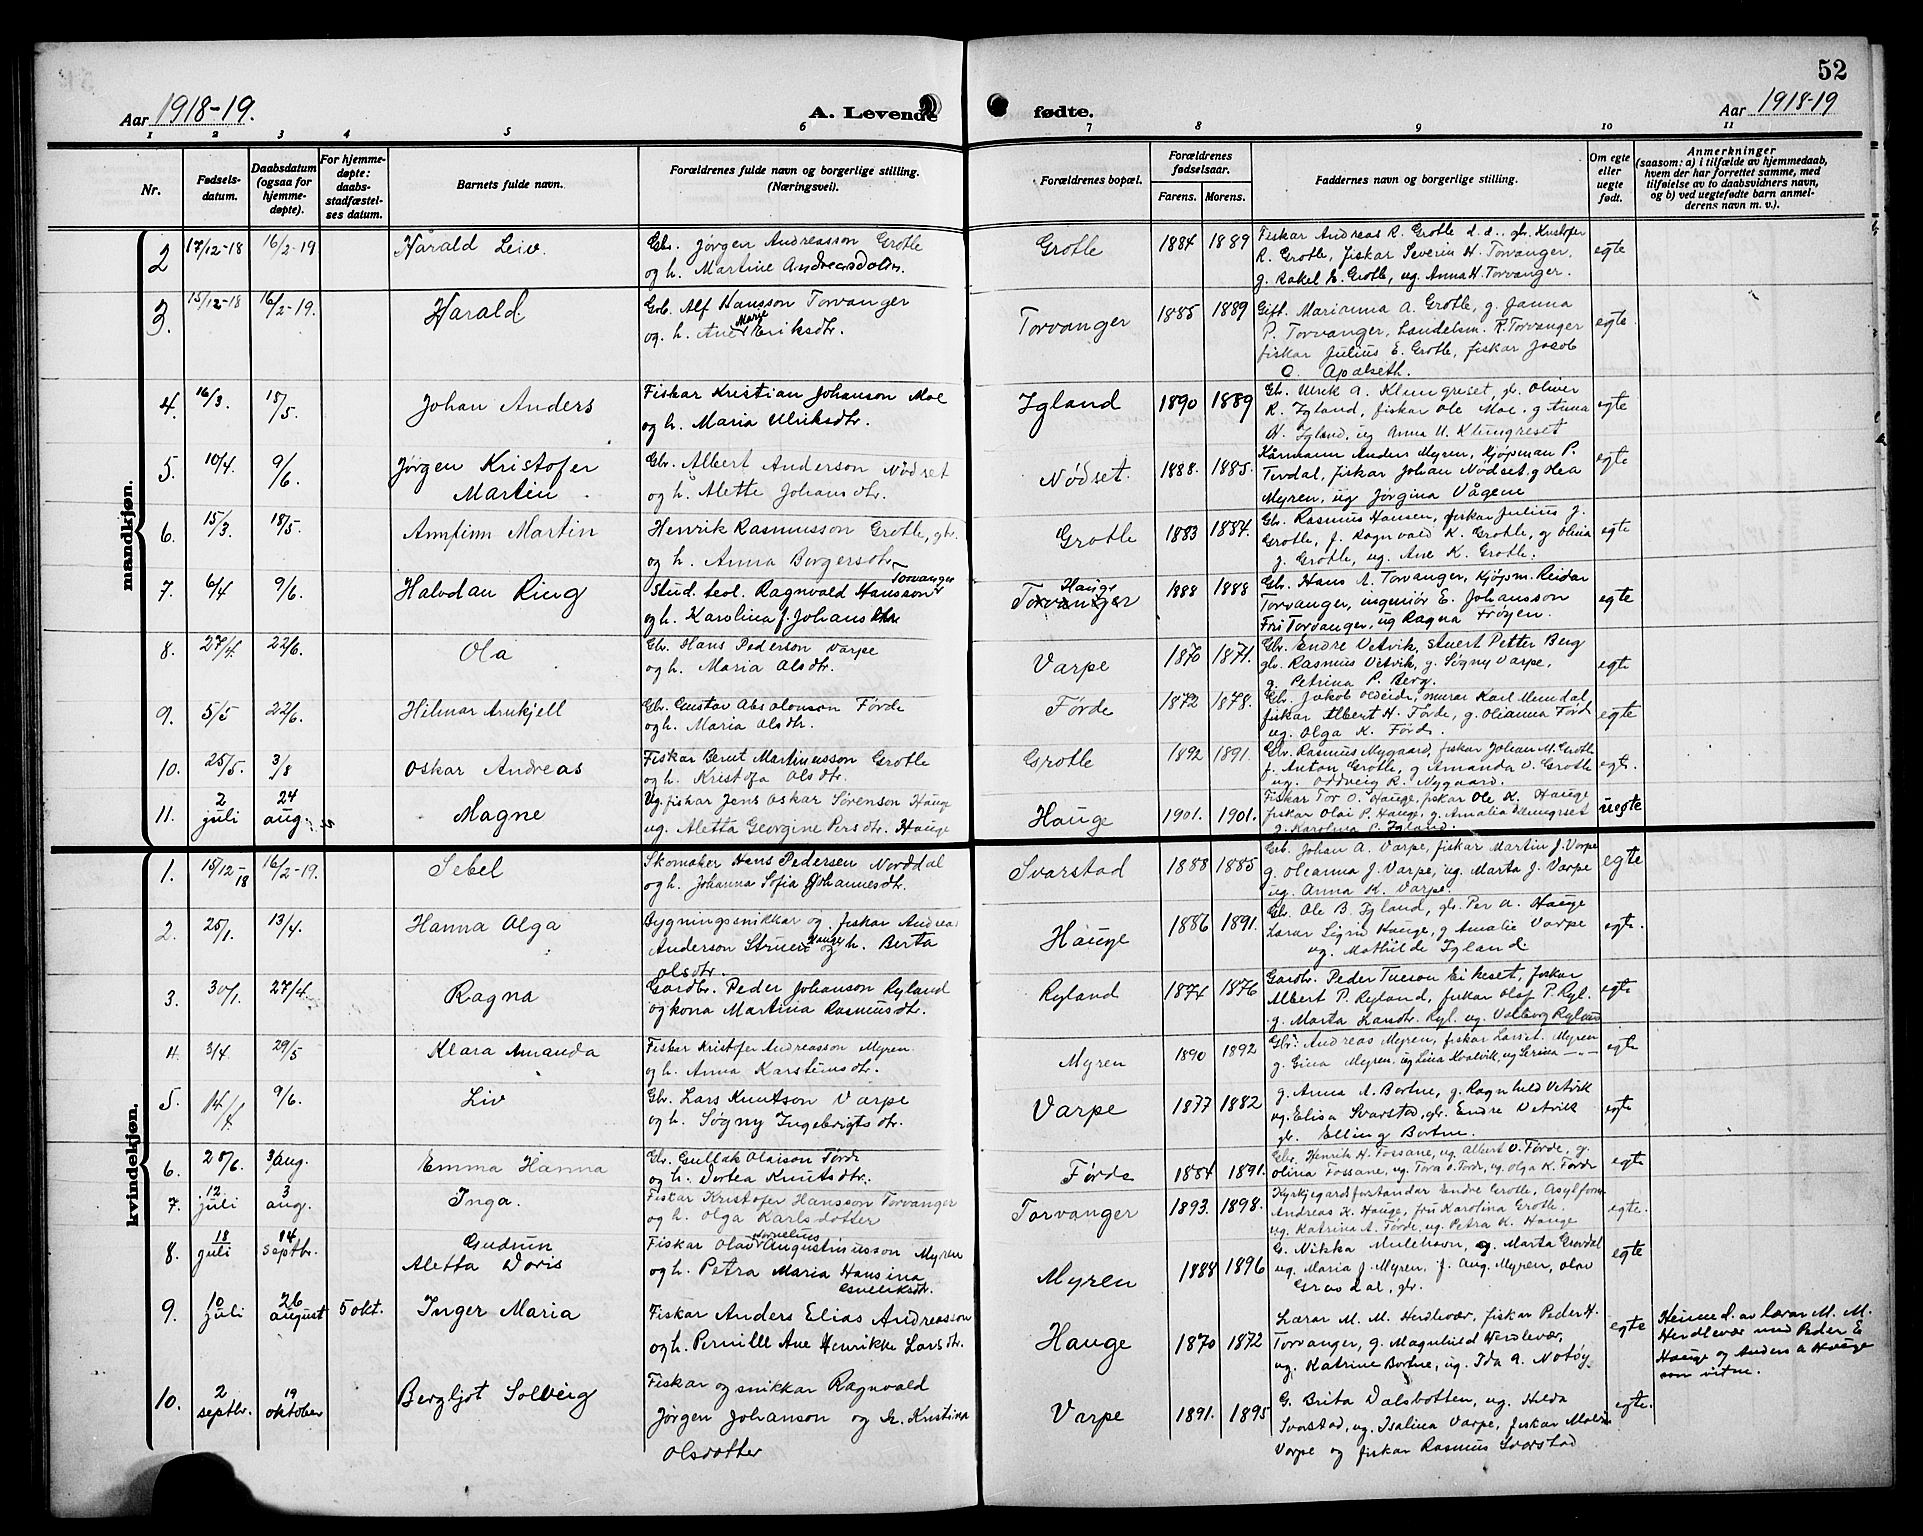 52
Aar 1918-19. A. Levende fødte. Aar 1918-19
1 2 3 4 5 6 7 8 9 10 11
Nr.
Fødsels-
datum.
Daabsdatum
(ogsaa for
hjemme-
døpte).
For hjemme-
døpte:
daabs-
stadfæstel-
ses datum.
Barnets fulde navn.
Forældrenes fulde navn og borgerlige stilling.
(Næringsvei).
Forældrenes bopæl.
Forældrenes
fødselsaar.
Farens. Morens.
Faddernes navn og borgerlige stilling.
Om egte
eller
uegte
født.
Anmerkninger
(saasom: a) i tilfælde av hjemmedaab,
hvem der har forrettet samme, med
tilføielse av to daabsvidners navn,
og b) ved uegtefødte barn anmel-
derens navn m. v.).
mandkjøn.
2 17/12-18 16/2-19 Harald Leiv. Gbr. Jørgen Andreasson Grotle
og h. Martine Andreasdotr. Grotle 1884 1889 egte
Fiskar Andreas R. Grotle d.e., gbr. Kristofer
R. Grotle, fiskar Severin H. Torvanger,
g. Rakel E. Grotle, ug. Anna H. Torvanger.
3. 15/12-18 16/2-19. Harald. Grb. Alf Hansson Torvanger
og h. Ane Marie Eriksdtr. Torvanger 1885 1889 egte.
Gift. Marianna A. Grotle, g. Janna
P. Torvanger, handelsm. R. Torvanger
fiskar Julius E. Grotle, fiskar Jacob
O. Apalseth.
4. 16/3. 18/5. Johan Anders Fiskar Kristian Johanson Moe
og h. Maria Ulriksdtr. Igland 1890 1889 egte
Gb. Ulrik A. Klungreset, gbr. Oliver
R. Igland, fiskar Ole Moe. g Anna
N. Igland, ug Anna U. Klungreset
5. 10/4. 9/6. Jørgen Kristofer
Martin Gbr. Albert Anderson Nødset
og h. Alette Johansdtr. Nødset. 1888. 1885. egte
Anders Myren, Kjøpman P.
Tevdal, fiskar Johan Nødset, g Olea
Myren, ug Jørgina Vågene
6. 15/3. 18/5. Arnfinn Martin Henrik Rasmusson Grotle, gbr.
og h. Anna Borgersdtr. Grotle 1883 1884. egte
Gbr. Rasmus Hansen, fiskar Julius J.
Grotle, f. Ragnvald K. Grotle, g Olina
J. Grotle, ug. Ane K. Grotle.
7. 6/4 9/6. Halvdan Ring Stud. teol. Ragnvald Hansson Torvanger
og h. Karolina f. Johansdtr Hauge
Torvanger 1888 1888 egte
Gbr. Hans A. Torvanger, Kjøpsm. Reidar
Torvanger, ingeniør E. Johansson
Fru Torvanger, ug Ragna Frøyen.
8. 27/4. 22/6. Ola Gbr. Hans Pederson Varpe
og h. Maria Olsdtr. Varpe 1870 1871. egte
Gbr. Endre Vetvik, stuert Petter Berg
gbr. Rasmus Vetvik, g. Søgny Varpe,
g. Petrina P. Berg.
9. 5/5 22/6. Hilmar Arnkjell Gbr. Gustav Absolonson Førde
og h. Maria Olsdtr. Førde 1872 1878. egte
Gbr. Jakob Oldeide, murar Karl Mundal,
fiskar Albert H. Førde, g. Olianna Førd
ug. Olga K. Førde.
10. 25/5. 3/8 Oskar Andreas Fiskar Bernt Martinusson Grotle
og h. Kristofa Olsdtr. Grotle 1892 1891. egte.
Gbr. Rasmus Nygaard, fiskar Johan M. Grotle
f. Anton Grotle, g Amanda O. Grotle
ug. Oddveig R. Nygaard.
11. 2 juli 24 aug. Magne Ug. fiskar Jens Oskar Sørenson Hauge
ug. Aletta Georgine Persdtr. Hauge Hauge 1901. 1901. uegte
Fiskar Tor O. Hauge, fiskar Ole K. Hauge
fiskar Olai P. Hauge, g Amalia Klungreset
g. Karolina P. Igland.
kvindekjøn.
1. 15/12-18 16/2-19. Sebel Skomaker Hans Pedersen Norddal
og h. Johanna Sofia Johannesdtr. Svarstad 1888 1885 egte
Grb. Johan A. Varpe, fiskar Martin J. Varpe
g. Oleanna J. Varpe, ug. Marta J. Varpe
ug. Anna K. Varpe.
2. 25/1. 13/4. Hanna Olga Bygningssnikkar og fiskar Andreas
Anderson Struen Hauge og h. Berta
Olsdtr. Hauge 1886 1891. egte.
Gbr. Ole B. Igland, gbr. Per A. Hauge
Lærar Signe Hauge, g Amalie Varpe
ug. Mathilde Igland
3. 30/1. 27/4. Ragna Gardbr. Peder Johanson Ryland
og kona Martina Rasmusdtr. Ryland 1874 1876 egte
Gardbr. Peder Tueson Eikeset, fiskar
Albert P. Ryland, fiskar Olaf P. Ryl.
g. Marta Larsdtr. Ryl. ug Valborg Ryland
4. 3/4. 29/5 Klara Amanda Fiskar Kristofer Andreasson Myren.
og h. Anna Karstensdtr. Myren 1890 1892 egte
Gbr. Andreas Myren, fiskar Lars T. Myren
g. Gina Myren. ug Lina Kvalvik, ug Serina – –
5. 14/4 9/6. Liv Gbr. Lars Knutson Varpe
og h. Søgny Ingebrigtsdtr. Varpe 1877 1882 egte
g. Anna A. Bortne, g. Ragnhild Vetvik
ug. Elisa Svarstad, gbr. Endre Vetvik
gbr. Elling Bortne.
6. 20/6. 3/aug. Emma Hanna Gbr. Gullak Olaison Førde
og h. Dortea Knutsdtr. Førde 1884 1891. egte
Gbr. Henrik H. Fossane, ug. Albert O. Førde, g.
Olina Fossane, ug. Tora O. Førde, ug. Olga K. Førde
7. 12 juli 3 aug. Inga. Fiskar Kristofer Hansson Torvanger
og h. Olga Karlsdotter Torvanger 1893. 1898. egte.
Kyrkjegardsforstandar Endre Grotle, Asylform.
Andreas K. Hauge, fru Karolina Grotle.
ug. Katrina A. Førde, ug. Petra K. Hauge
8. 18 juli 14 septbr. Gudrun
Aletta Doris Fiskar Olav Kornelius Augustinusson Myren
og h. Petra Maria Hansina
Gulleiksdtr. Myren 1888 1896 egte
G. Nikka Mulehavn, og Marta Grovdal
ug. Maria J. Myren, f. Aug. Myren, Olav
Grovdal, gbr.
9. 10 juli 26 august 5 okt. Inger Maria Fiskar Anders Elias Andreasson
og h. Pernille Ane Henrikke Larsdtr. Hauge 1870 1872 egte
Lærar M. M. Herdlevær, fiskar Peder H.
Torvanger, g. Magnhild Herdlevær,
ug. Katrine Bortne, ug. Ida A. Notøy.
Heimed. av lærar M. M.
Herdlevær med Peder E
Hauge og Anders A Hauge
som vitne.
10. 2 septbr. 19 oktober Bergljot Solveig Fiskar og snikkar Ragnvald
Jørgen Johanson og h. Kristina
Olsdotter Varpe 1891. 1895 egte.
G. Brita Dalsbotten, ug. Hilda
Svarstad, ug. Isalina Varpe, fiskar
Varpe og fiskar Rasmus Svarstad